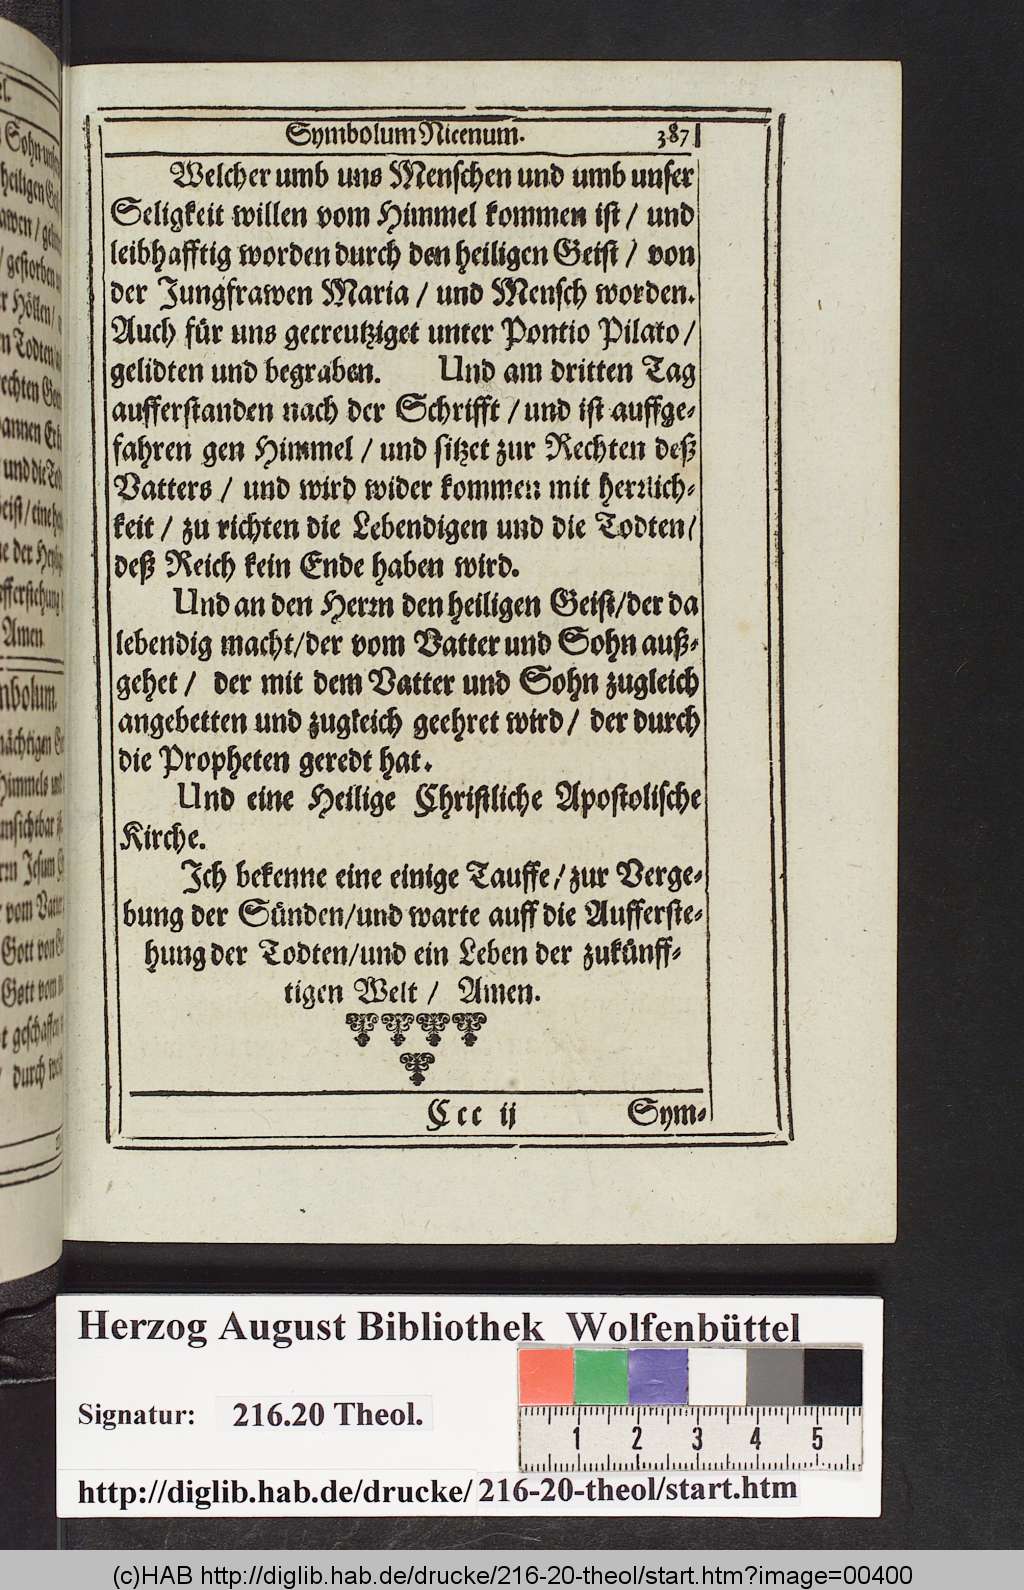 Symbolum Nicenum. 387
Welcher umb uns Menschen und umb unser
Seligkeit willen vom Himmel kommen ist / und
leibhafftig worden durch den heiligen Geist / von
der Jungfrawen Maria / und Mensch worden.
Auch für uns gecreutziget unter Pontio Pilato /
gelidten und begraben. Und am dritten Tag
aufferstanden nach der Schrifft / und ist auffge-
fahren gen Himmel / und sitzet zur Rechten deß
Vatters / und wird wider kommen mit herrlich-
keit / zu richten die Lebendigen und die Todten /
deß Reich kein Ende haben wird.
Und an den Herrn den heiligen Geist / der da
lebendig macht / der vom Vatter und Sohn auß-
gehet / der mit dem Vatter und Sohn zugleich
angebetten und zugleich geehret wird / der durch
die Propheten geredt hat.
Und eine Heilige Christliche Apostolische
Kirche.
Ich bekenne eine einige Tauffe / zur Verge-
bung der Sünden / und warte auff die Aufferste-
hung der Todten / und ein Leben der zukünff-
tigen Welt / Amen.
Ccc ij Sym-
Herzog August Bibliothek Wolfenbüttel
Signatur: 216.20 Theol.
1 2 3 4 5
http://diglib.hab.de/drucke/216-20-theol/start.htm
(c)HAB http://diglib.hab.de/drucke/216-20-theol/start.htm?image=00400